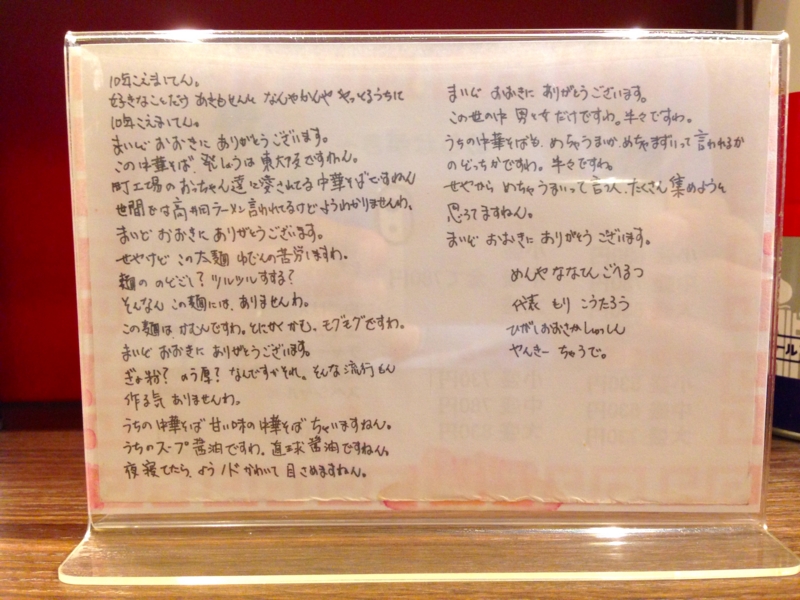 10年こえまいてん。
好きなことだけ あきもせんと なんやかんや やっとるうちに
10年こえまいてん。
まいど おおきに ありがとうございます。
この中華そば、発しょうは 東大阪ですねん。
町工場のおっちゃん達に愛されてる中華そばですねん
世間では高井田ラーメン言われてるけどようわかりませんわ。
まいど おおきに ありがとうございます。
せやけど この太麺 ゆでんの苦労しますわ。
麺の のどごし？ツルツルすする？
そんなん この麺には、ありませんわ。
この麺は、かむんですわ。とにかくかむ。モグモグですわ。
まいど おおきに ありがとうございます。
ぎょ粉？のう厚？なんですかそれ。そんな流行もん
作る気 ありませんわ。
うちの中華そば 甘い味の中華そば ちゃいますねん。
うちのスープ 醤油ですわ。直球醤油ですねん。
夜寝てたら、よう ノド かわいて 目さめますねん。
まいど おおきに ありがとうございます。
この世の中 男と女だけですわ。半々ですわ。
うちの中華そばも、めちゃうまいか、めちゃまずいって 言われるか
のどっちかですわ。半々ですわ。
せやから めちゃうまいって 言う人、たくさん集めようと
思ってますねん。
まいど おおきに ありがとう ございます。
めんや ななてんごへるつ
代表 もり こうたろう
ひがしおおさかしゅっしん
やんきー ちゅうで。